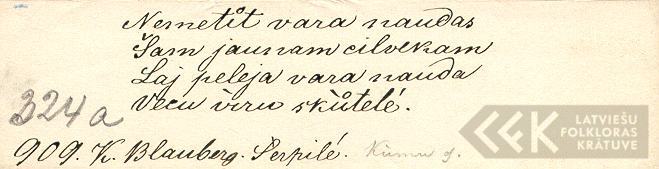 Nemetit vara naudas
Šam jaunam cilvekam
Laj peleja vara nauda
Vecu viru skůtelé.
324a
909. K. Blauberg. Serpilé. Kūmu g.
LATVIEŠU
FOLKLORAS
KRĀTUVE